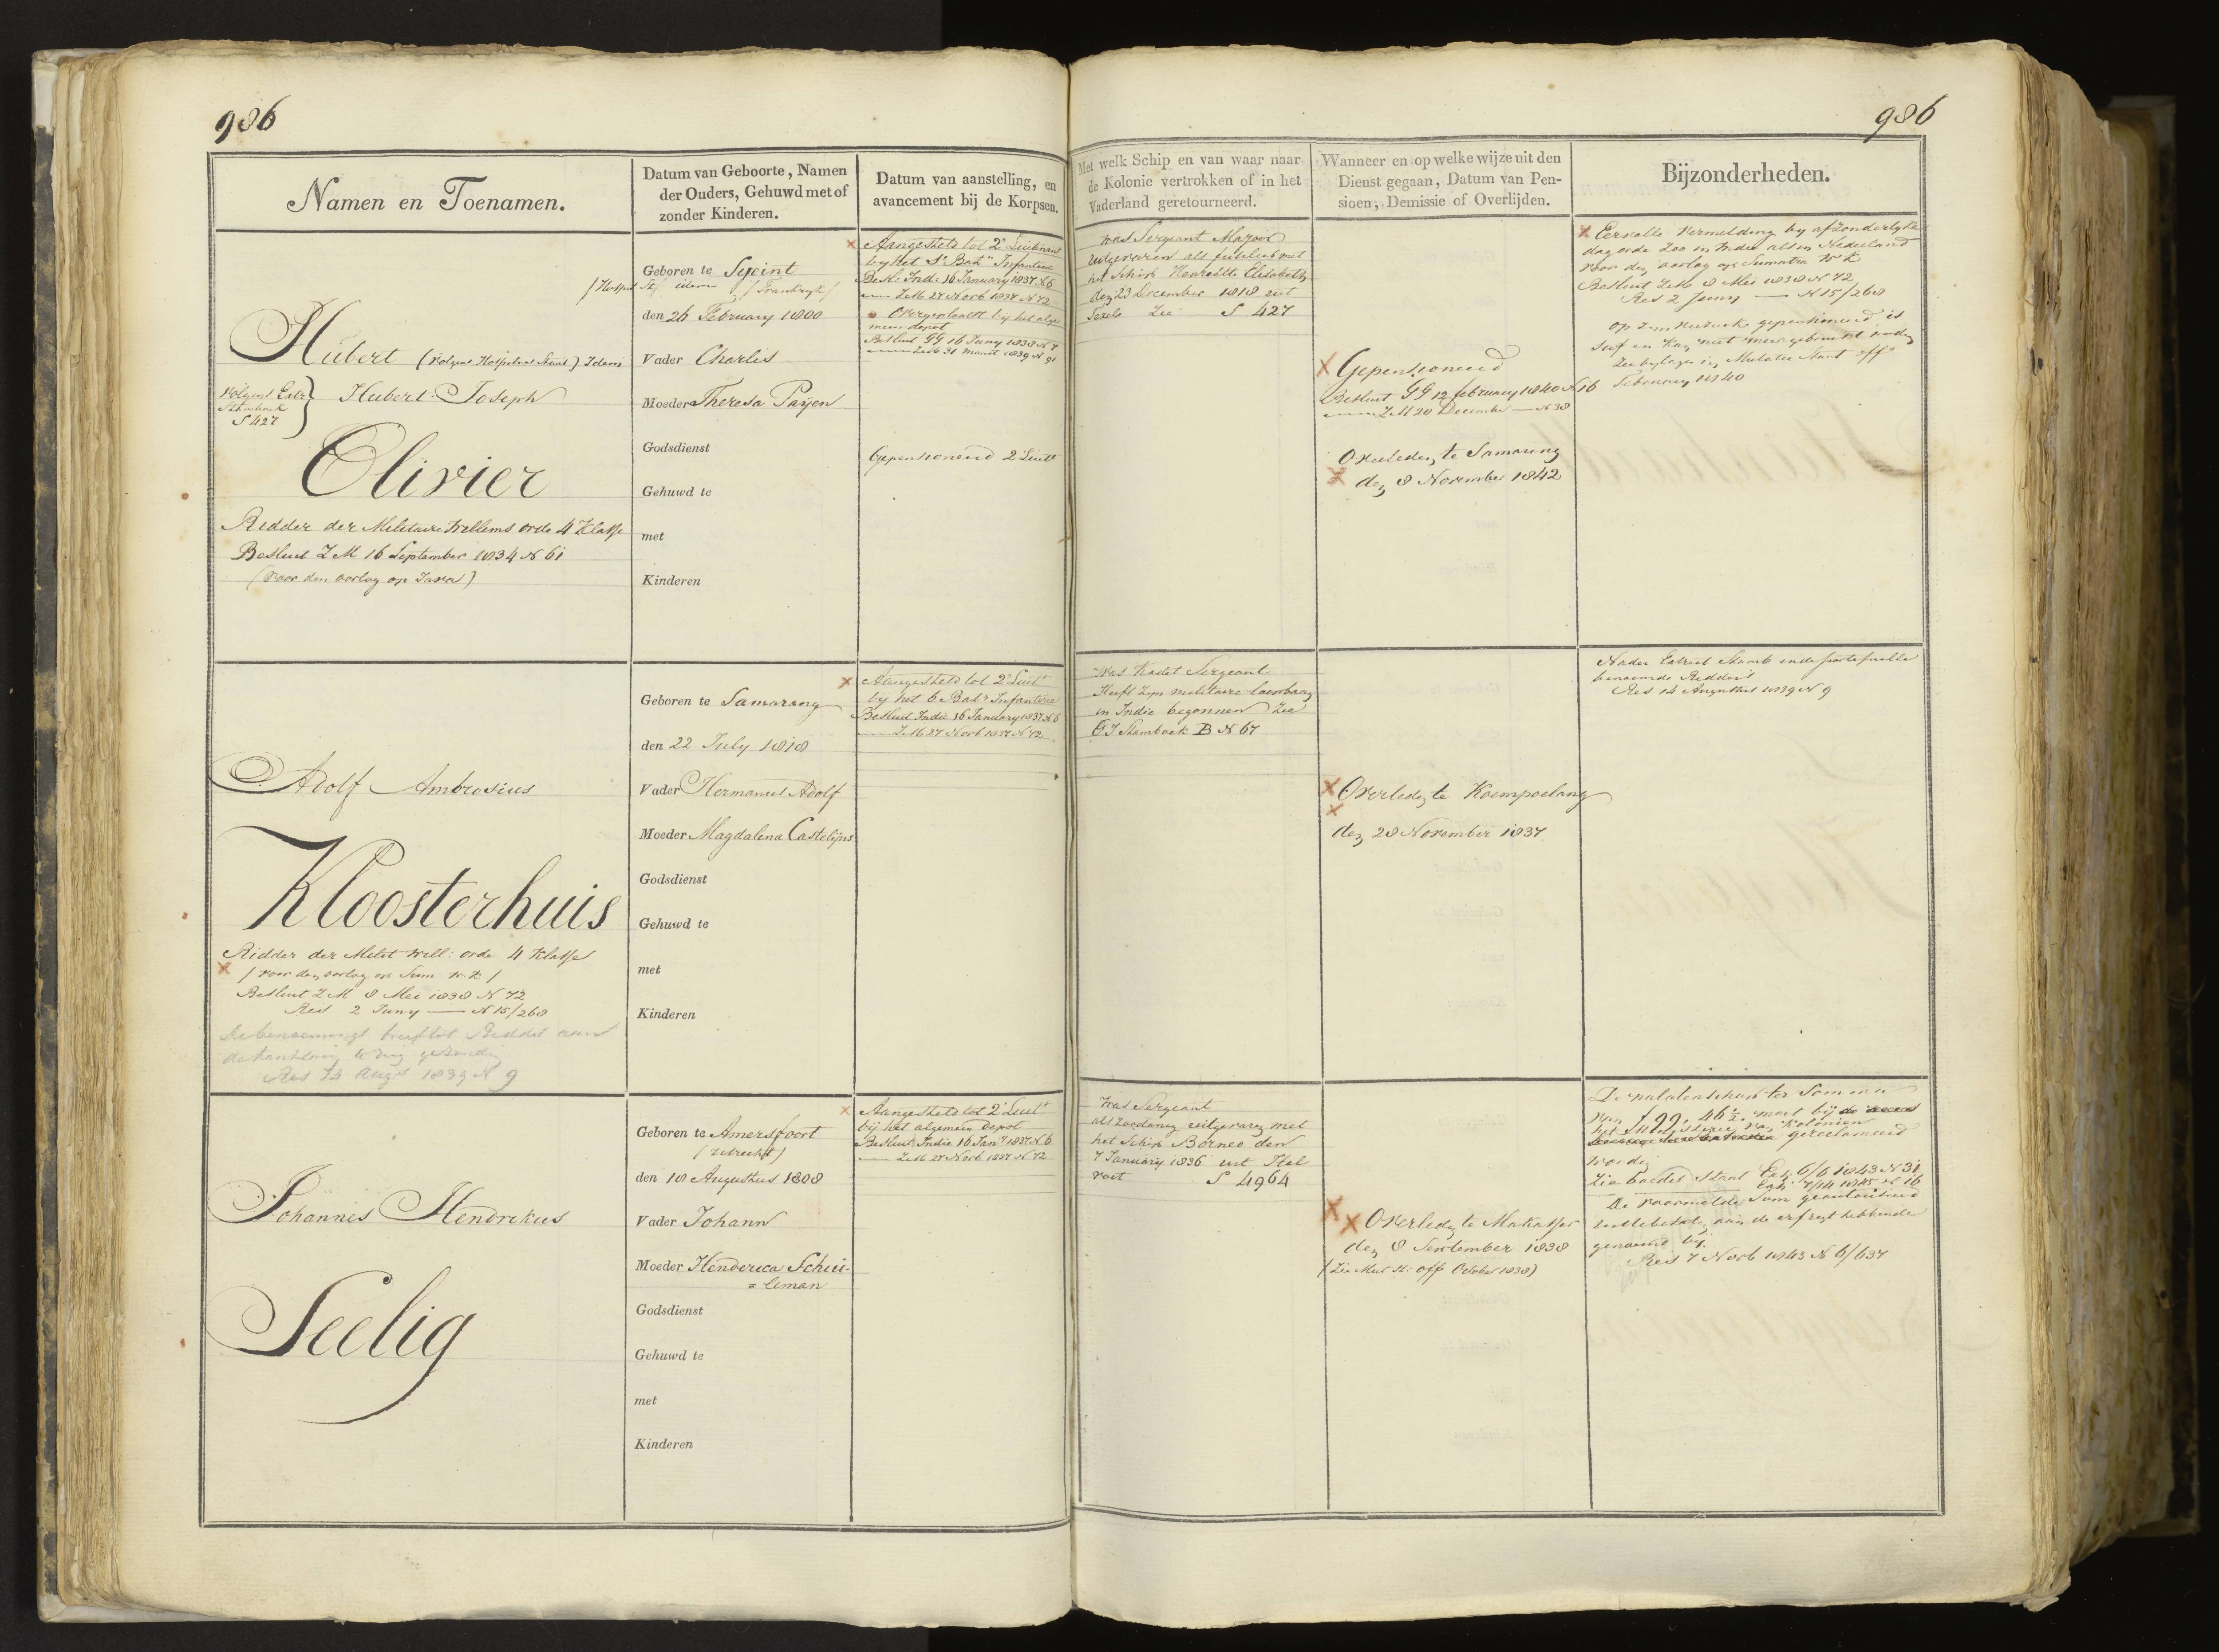 986
986
Namen en Toenamen.
Datum van Geboorte, Namen
der Ouders, Gehuwd met of
zonder Kinderen.
Datum van aanstelling, en
avancement bij de Korpsen.
Met welk Schip en van waar naar
de Kolonie vertrokken of in het
Vaderland geretourneerd.
Wanneer en op welke wijze uit den
Dienst gegaan, Datum van Pen-
sioen, Demissie of Overlijden.
Bijzonderheden.
Hubert
Hubert Joseph
S 427
Olivier
Ridder der Militaire Willems orde 4 Klasse
Besluit Z M 16 September 1834 N 61
(voor den oorlog op Java)
Geboren te
idem / Frankryk /
den 26 February 1800
Vader Charles
Moeder Theresa Payen
Godsdienst
Gehuwd te
met
Kinderen
Aangesteld tot 2e Luitenant
by het
Infanterie
Besl: Indie 16 January 1837 N 6
Z M 27 Novb 1837 N 72
Overgeplaatst by het alge
meen depot
Besluit GG 16 Juny 1838 N 7
Z M 31 Maart 1839 N 91
Gepensioneerd 2 Luitt
was Sergeant Majoor
uitgevaren als fuselier met
het Schip Henriette Elisabeth
den 23 December 1818 uit
Texel Zie S 427
Gepensioneerd
Besluit GG 12 february 1840 N 16
Z M 20 December N 38
Overleden te Samarang
den 8 November 1842
Eervolle vermelding by afzonderlyke
dagorde zoo in Indie als in Nederland
voor den oorlog op Sumatra W K
Besluit Z M 8 Mei 1838 N 72
Res 2 Juny N 15/268
op zyn verzoek gepensioneerd is
en kan niet meer gebruikt worden
Zie bylage in Mutatie Staat offn
February 1840
Adolf Ambrosius
Kloosterhuis
Ridder der Milit Will: orde 4 Klasse
/ voor den oorlog op Sum W K /
Besluit Z M 8 Mei 1838 N 72
Res 2 Juny N 15/268
Res 14 Augs 1839 N 9
Geboren te Samarang
den 22 July 1818
Vader Hermanus Adolf
Moeder Magdalena Castelijns
Godsdienst
Gehuwd te
met
Kinderen
Aangesteld tot 2e Luitt
by het 6 Batn Infanterie
Besluit Indie 16 January 1837 N 6
Z M 27 Novb 1837 N 72
was Kadet Sergeant
Heeft zyn militaire loopbaan
in Indie begonnen Zie
O I Stamboek B N 67
Overleden te Koempoelang
den 28 November 1837
Nader Extract Stamb in de portefeuille
benoemde Ridders
Res 14 Augustus 1839 N 9
Johannes Hendrikus
Seelig
Geboren te Amersfoort
(Utrecht)
den 18 Augustus 1808
Vader Johann
Moeder Henderica Schui-
= leman
Godsdienst
Gehuwd te
met
Kinderen
Aangesteld tot 2e Luitt
bij het algemeen depot
Besluit Indie 16 Jany 1837 N 6
Z M 27 Novb 1837 N 72
was Sergeant
als zoodanig uitgevaren met
het Schip Borneo den
7 January 1836 uit Hel
voet S 4964
Overleden te Makasser
den 8 September 1838
(Zie Mut St: off October 1838)
De nalatenschap ter Somma
van f 99,46½ moet bij
het Ministerie van Kolonien
gereclameerd
worden
Zie boedel Staat Exh 6/6 1843 N 31
Exh 7/14 1845 N 16
De voormelde Som geautoriseerd
uittebetalen aan de erfregt hebbende
genaamd bij
Res 7 Novb 1843 N 6/637